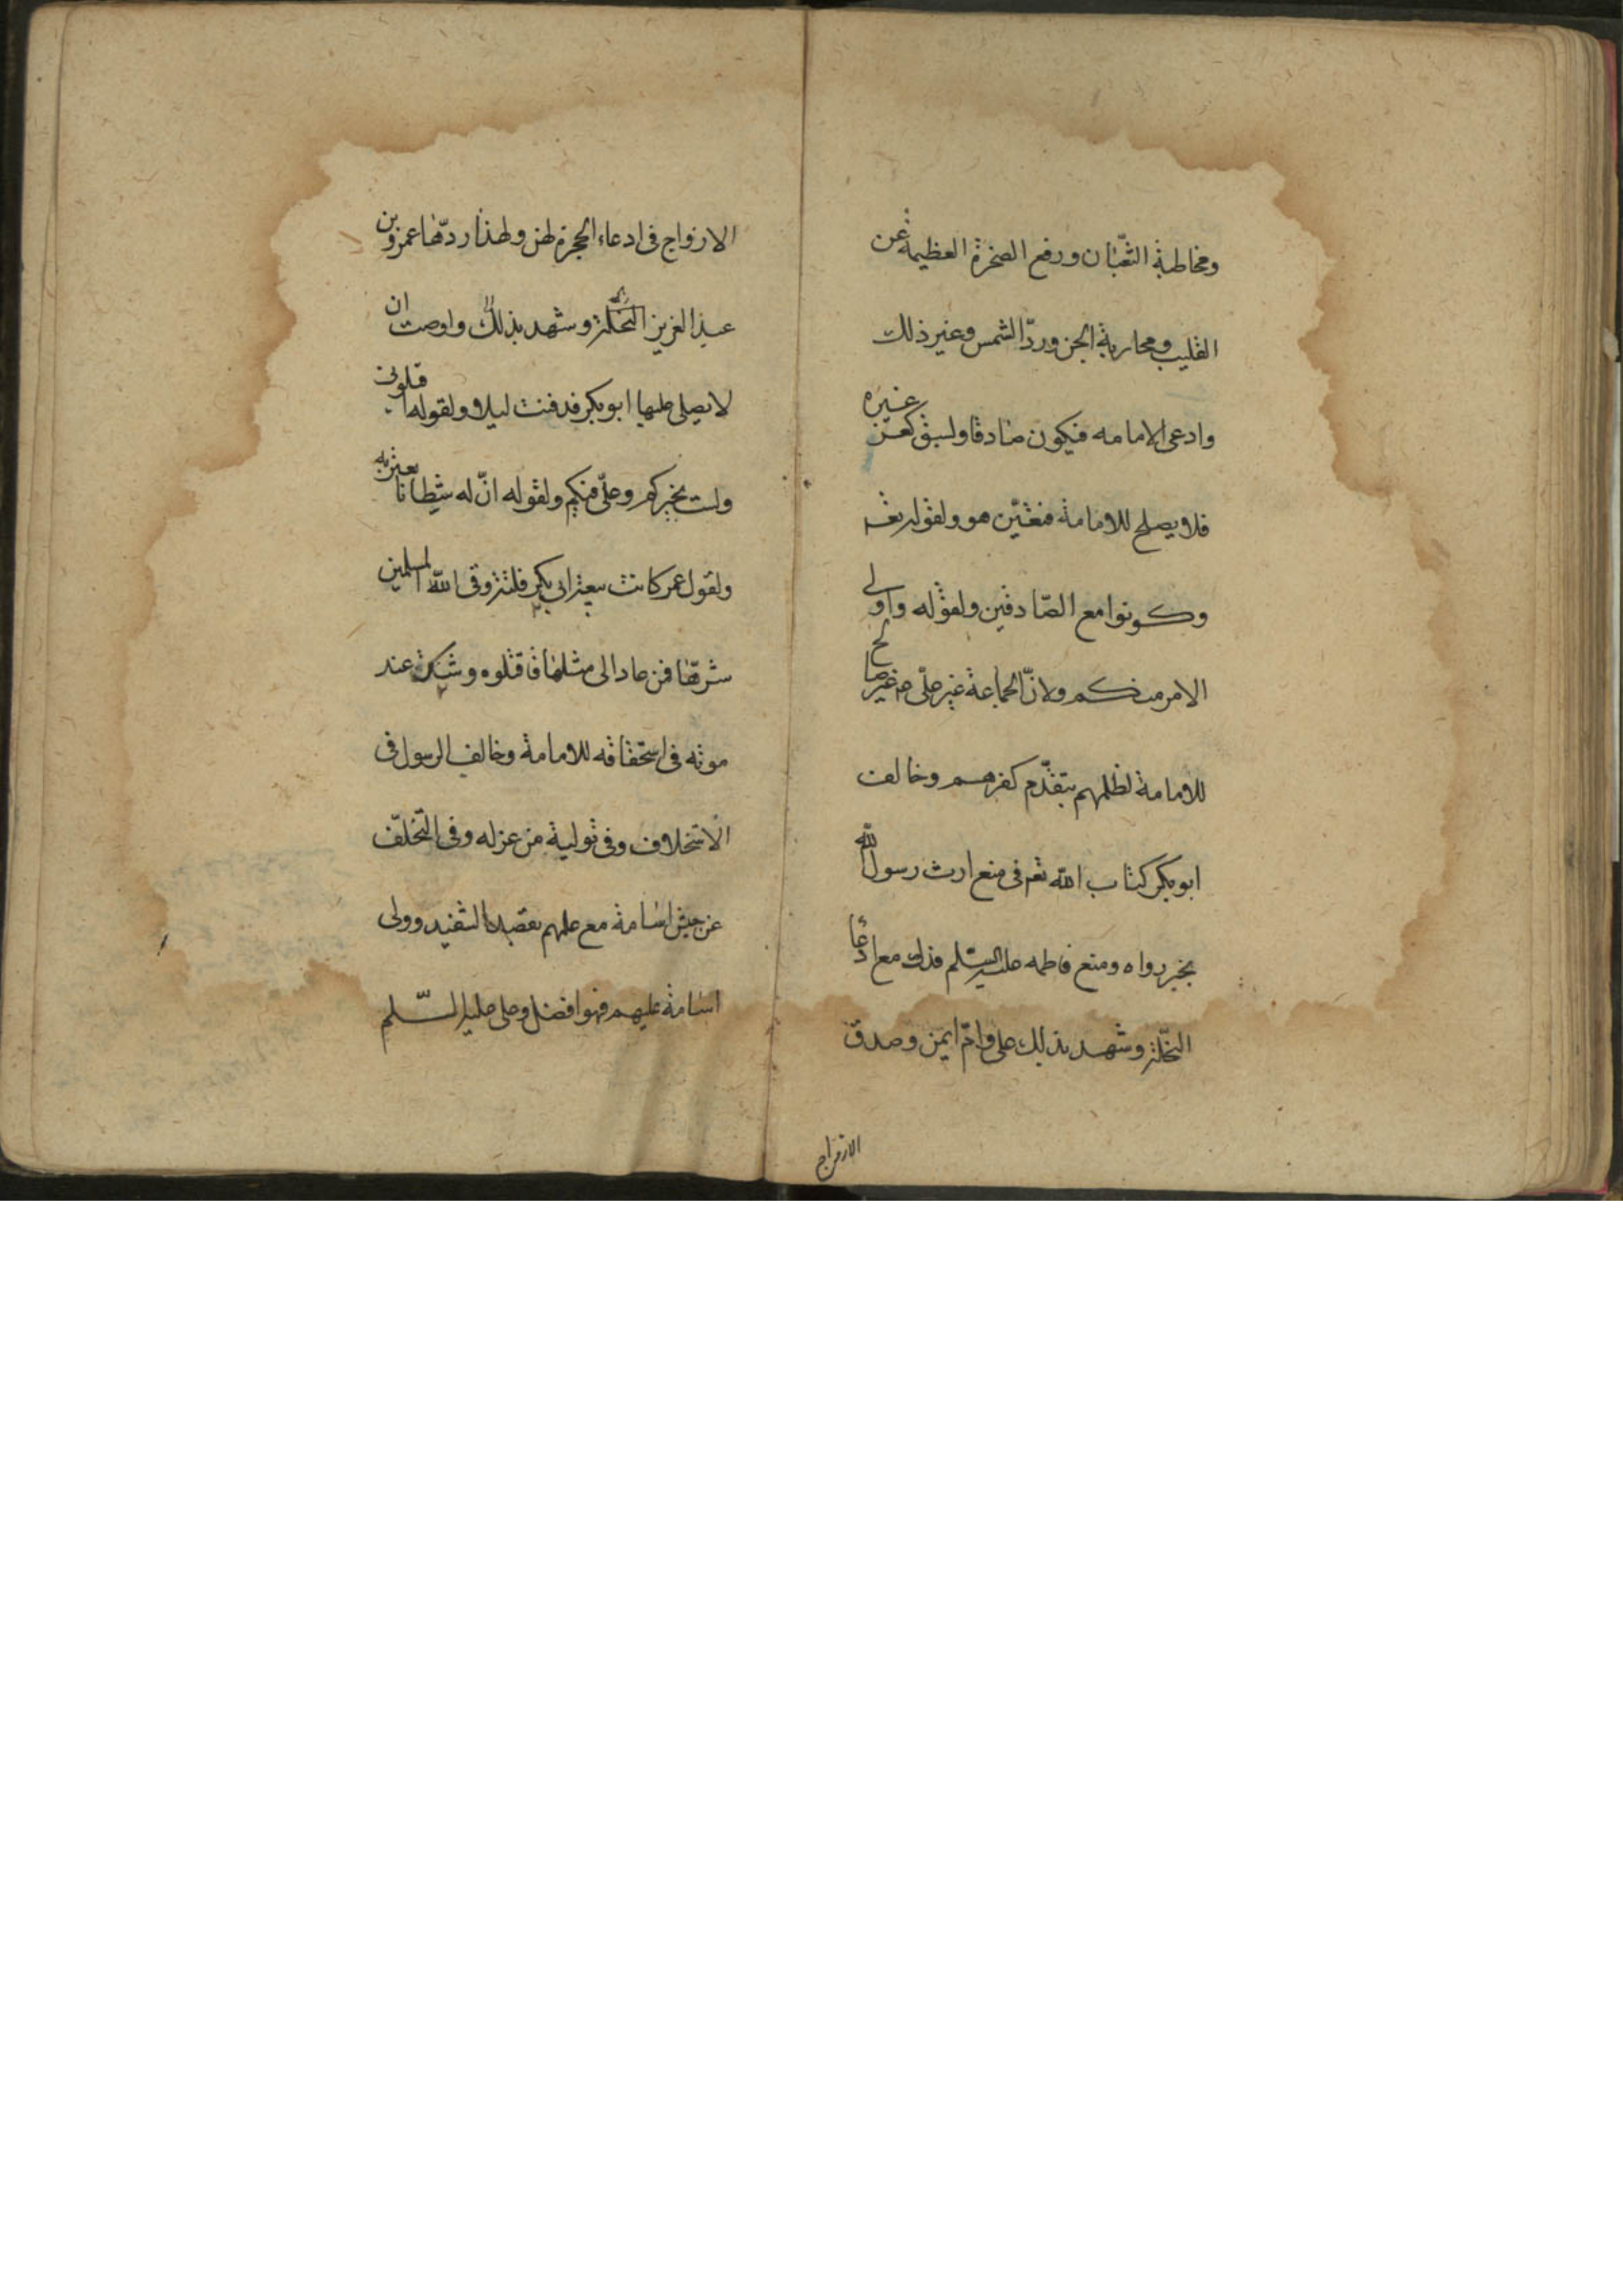 ومخاطبة الثعبان ورفع الصخرة العظيمة عن
القليب ومحاربة الجن وردّ الشمس وغير ذلك
وادعى الامامه فيكون صادقا ولسبق كفر غيره
فلا يصلح للامامة فتعيّن هو ولقوله تعـ
وكونوا مع الصّادقين ولقوله واولى
الامر منكم ولانّ الجماعة غير علىّ ع غير صالح
للامامة لظلمهم بتقدّم كفرهم وخالف
ابو بكر كتاب الله تعـ فى منع ارث رسول الله
بخبر رواه ومنع فاطمه عليها السّلم فدك مع ادعا
النحّلة وشهد بذلك على وامّ ايمن وصدق
الازواج
الازواج فى ادعاء الحجرة لهن ولهذا ردّها عمر بن
عبد العزيز وشهد بذلك واوصت ان
لا يصلى عليها ابو بكر فدفنت ليلا ولقوله اقيلونى
ولست بخيركم وعلىّ فيكم ولقوله انّ له شيطانا يعتريه
ولقول عمر كانت بيعة ابى بكر فلتة وقى الله المسلمين
شرّها فمن عاد الى مثلها فاقتلوه وشك عند
موته فى استحقاقه للامامة وخالف الرسول فى
الاستخلاف وفى تولية من عزله وفى التخلّف
عن جيش اسامة مع علمهم بقصد التنفيذ وولى
اسامة عليهم فهو افضل وعلى عليه السّلم